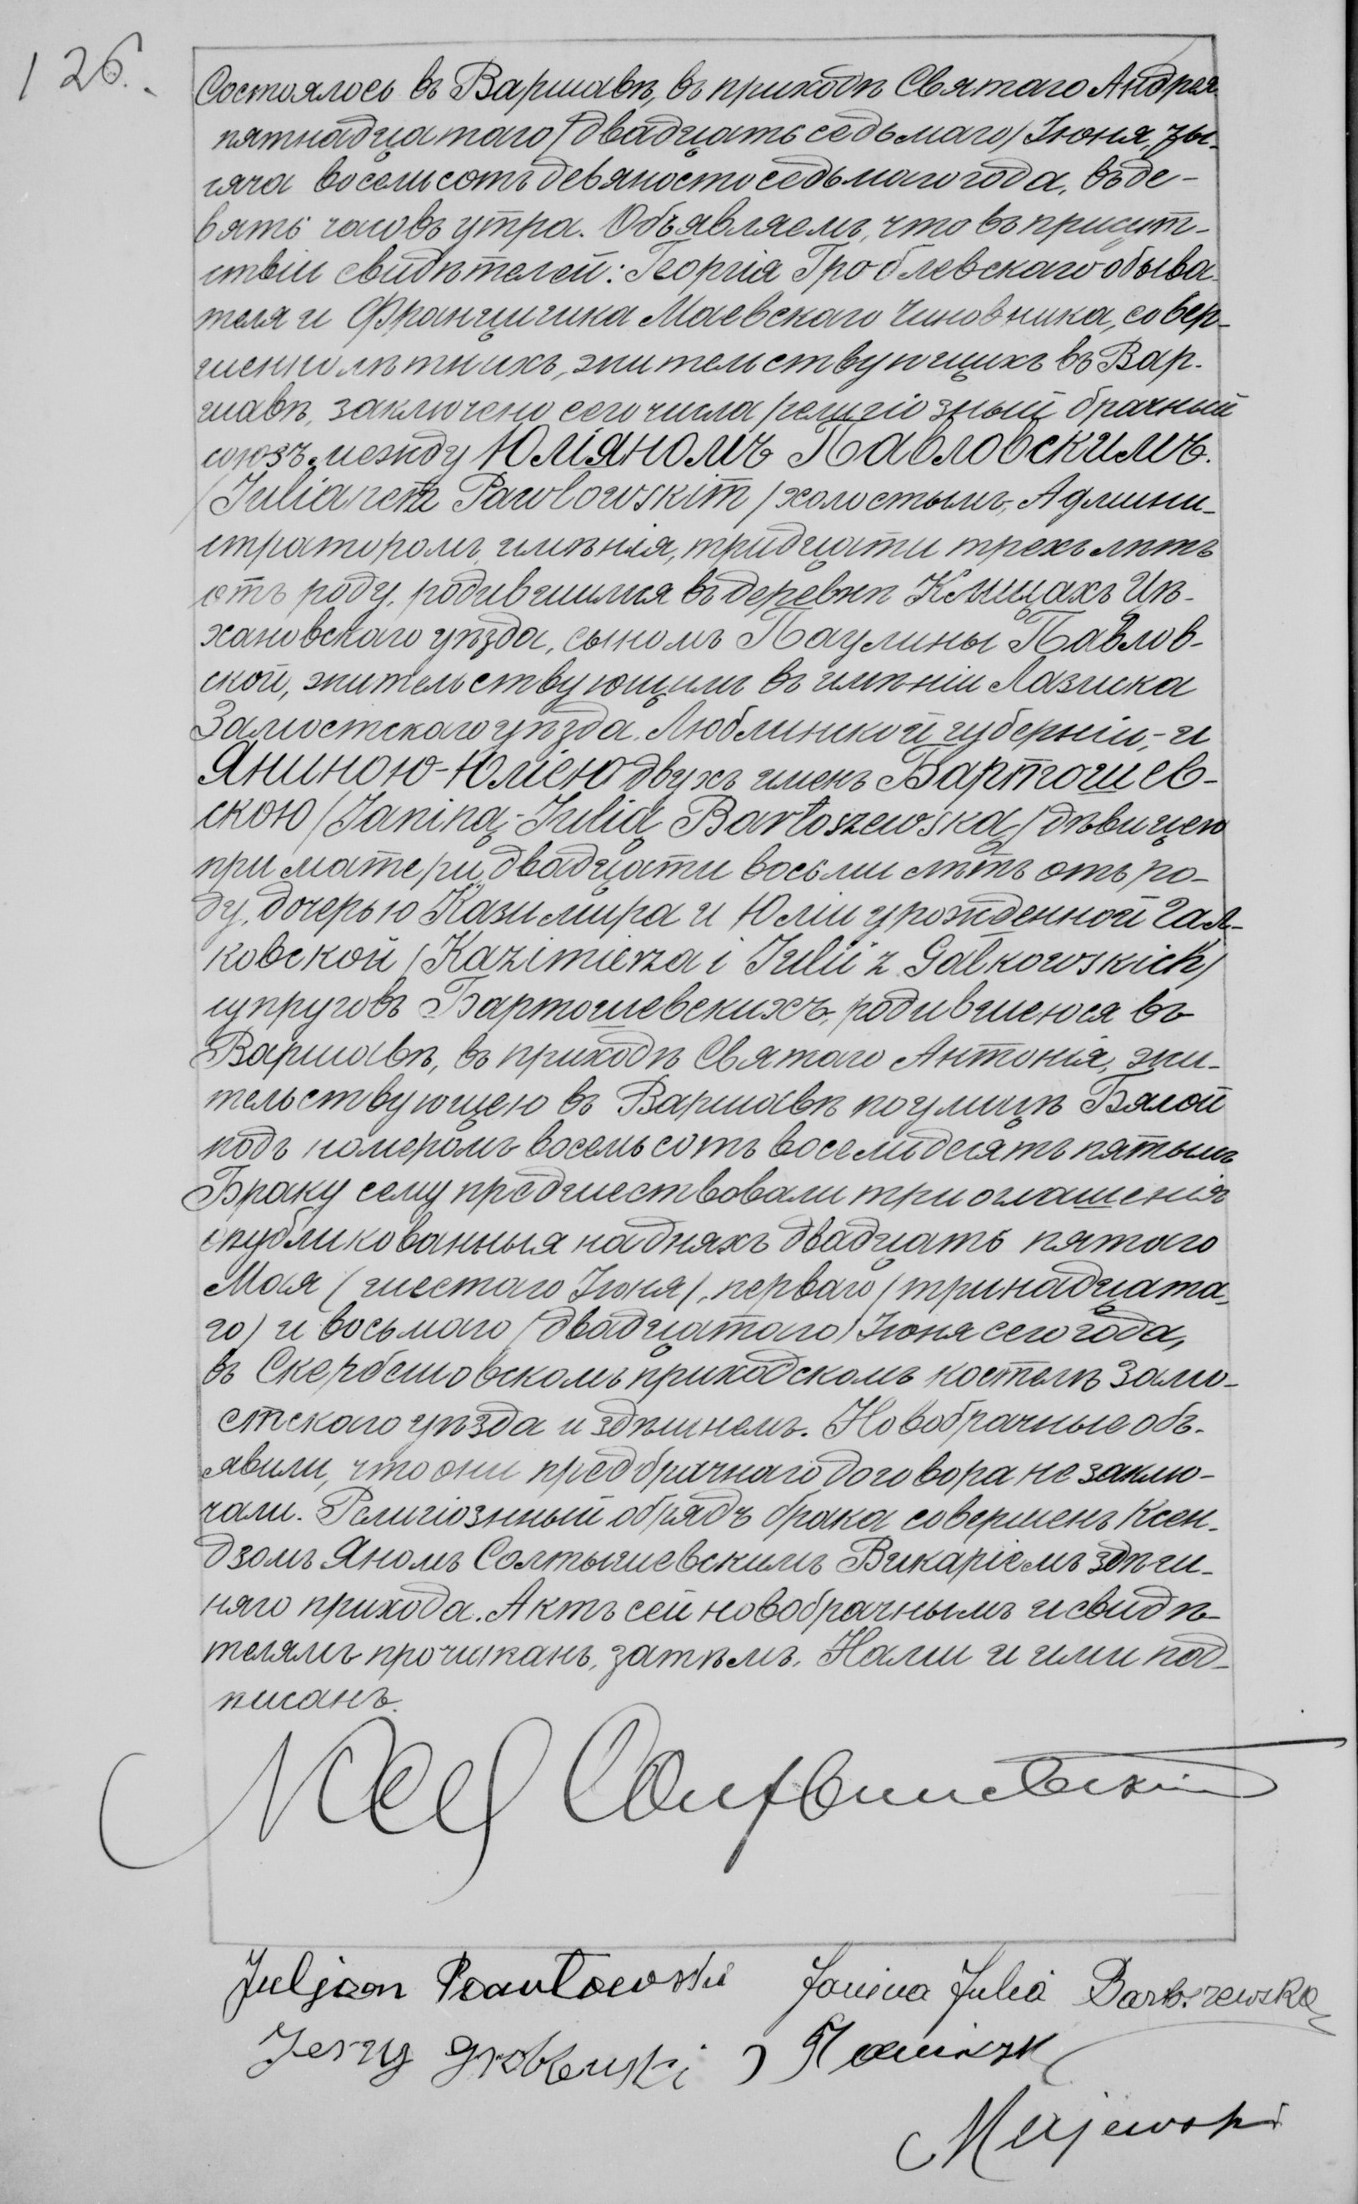 126.
Состоялось въ Варшавѣ, въ приходѣ Святаго Андрея
пятнадцатаго /двадцать седьмаго/ Іюня, ты-
сяча восемьсотъ девяносто седьмаго года, въ де-
вять часовъ утра. Объявляемъ, что въ присут-
ствіи свидѣтелей: Георгія Гроблевскаго обыва-
теля и Францишка Маевскаго чиновника, совер-
шеннолѣтнихъ, жительствующихъ въ Вар-
шавѣ, заключено сего числа религіозный брачный
союзъ между Юліяномъ Павловскимъ.
/Julianem Pawłowskim/ холостымъ, Админи-
страторомъ имѣнія, тридцати трехъ лѣтъ
отъ роду, родившимся въ деревнѣ Климахъ Цѣ-
хановскаго уѣзда, сыномъ Паулины Павлов-
ской, жительствующимъ въ имѣніи Лазиска
Замостскаго уѣзда Люблинской губерніи,- и
Яниною-Юліею двухъ именъ Бартошев-
скою /Janiną-Julią Bartoszewską/ дѣвицею
при матери, двадцати восьми лѣтъ отъ ро-
ду, дочерью Казимира и Юліи урожденной Гал-
ковской /Kazimierza i Julii z Gałkowskich/
супруговъ Бартошевскихъ, родившеюся въ
Варшавѣ, въ приходѣ Святаго Антонія, жи-
тельствующею въ Варшавѣ по улицѣ Бялой
подъ номеромъ восемьсотъ восемьдесятъ пятымъ
Браку сему предшествовали три оглашенія
опубликованныя на дняхъ двадцать пятаго
Мая /шестаго Іюня/, перваго /тринадцата-
го/ и восьмаго /двадцатаго/ Іюня сего года,
въ Скербешовскомъ приходскомъ костелѣ Замо-
стскаго уѣзда и здѣшнемъ. Новобрачные объ-
явили, что они предбрачнаго договора не заклю-
чали. Религіозный обрядъ брака совершенъ Ксен-
дзомъ Яномъ Солтышевскимъ Викаріемъ здѣш-
няго прихода. Актъ сей новобрачнымъ и свидѣ-
телямъ прочитанъ, затѣмъ, Нами и ими под-
писанъ.
Juljan Pawłowski Janina Julia Bartoszewska
Jerzy Groblewski, Franciszek
Majewski